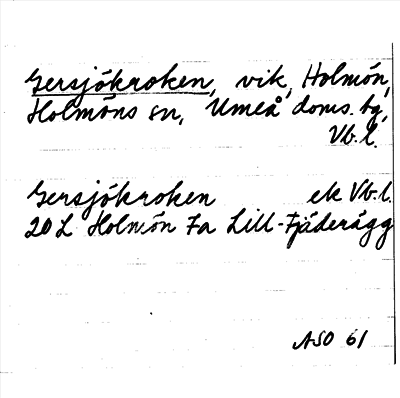 Gersjökroken, vik, Holmön,
Holmöns sn, Umeå doms. tg,
Vb. l.
Gersjökroken ek Vb. l.
20 L Holmön 7a Lill-Fjäderägg
ASO 61